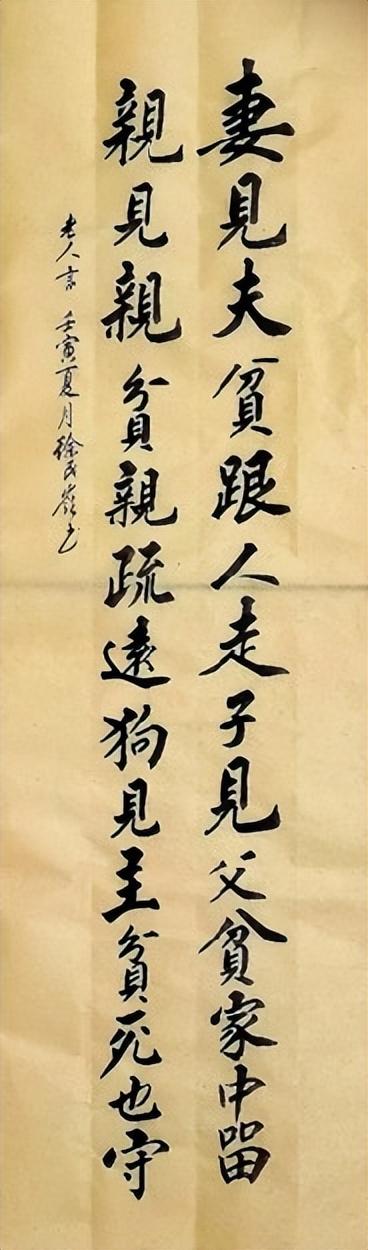 妻見夫貧跟人走子見父貧家中留
親見親貧親疏遠狗見主貧死也守
老人言 壬寅夏月徐民